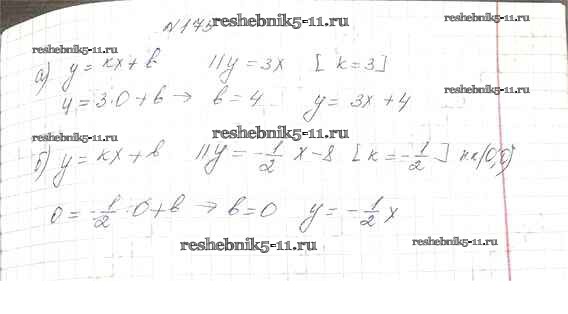 №175
reshebnik5-11.ru
reshebnik5-11.ru
reshebnik5-11.ru
а) y = kx + b   || y = 3x   [ k = 3 ]
4 = 3·0 + b → b = 4   y = 3x + 4
reshebnik5-11.ru
reshebnik5-11.ru
б) y = kx + b   || y = -1/2 x - 8 [ k = -1/2 ] (0;0)
0 = -1/2 · 0 + b → b = 0   y = -1/2 x
reshebnik5-11.ru
reshebnik5-11.ru